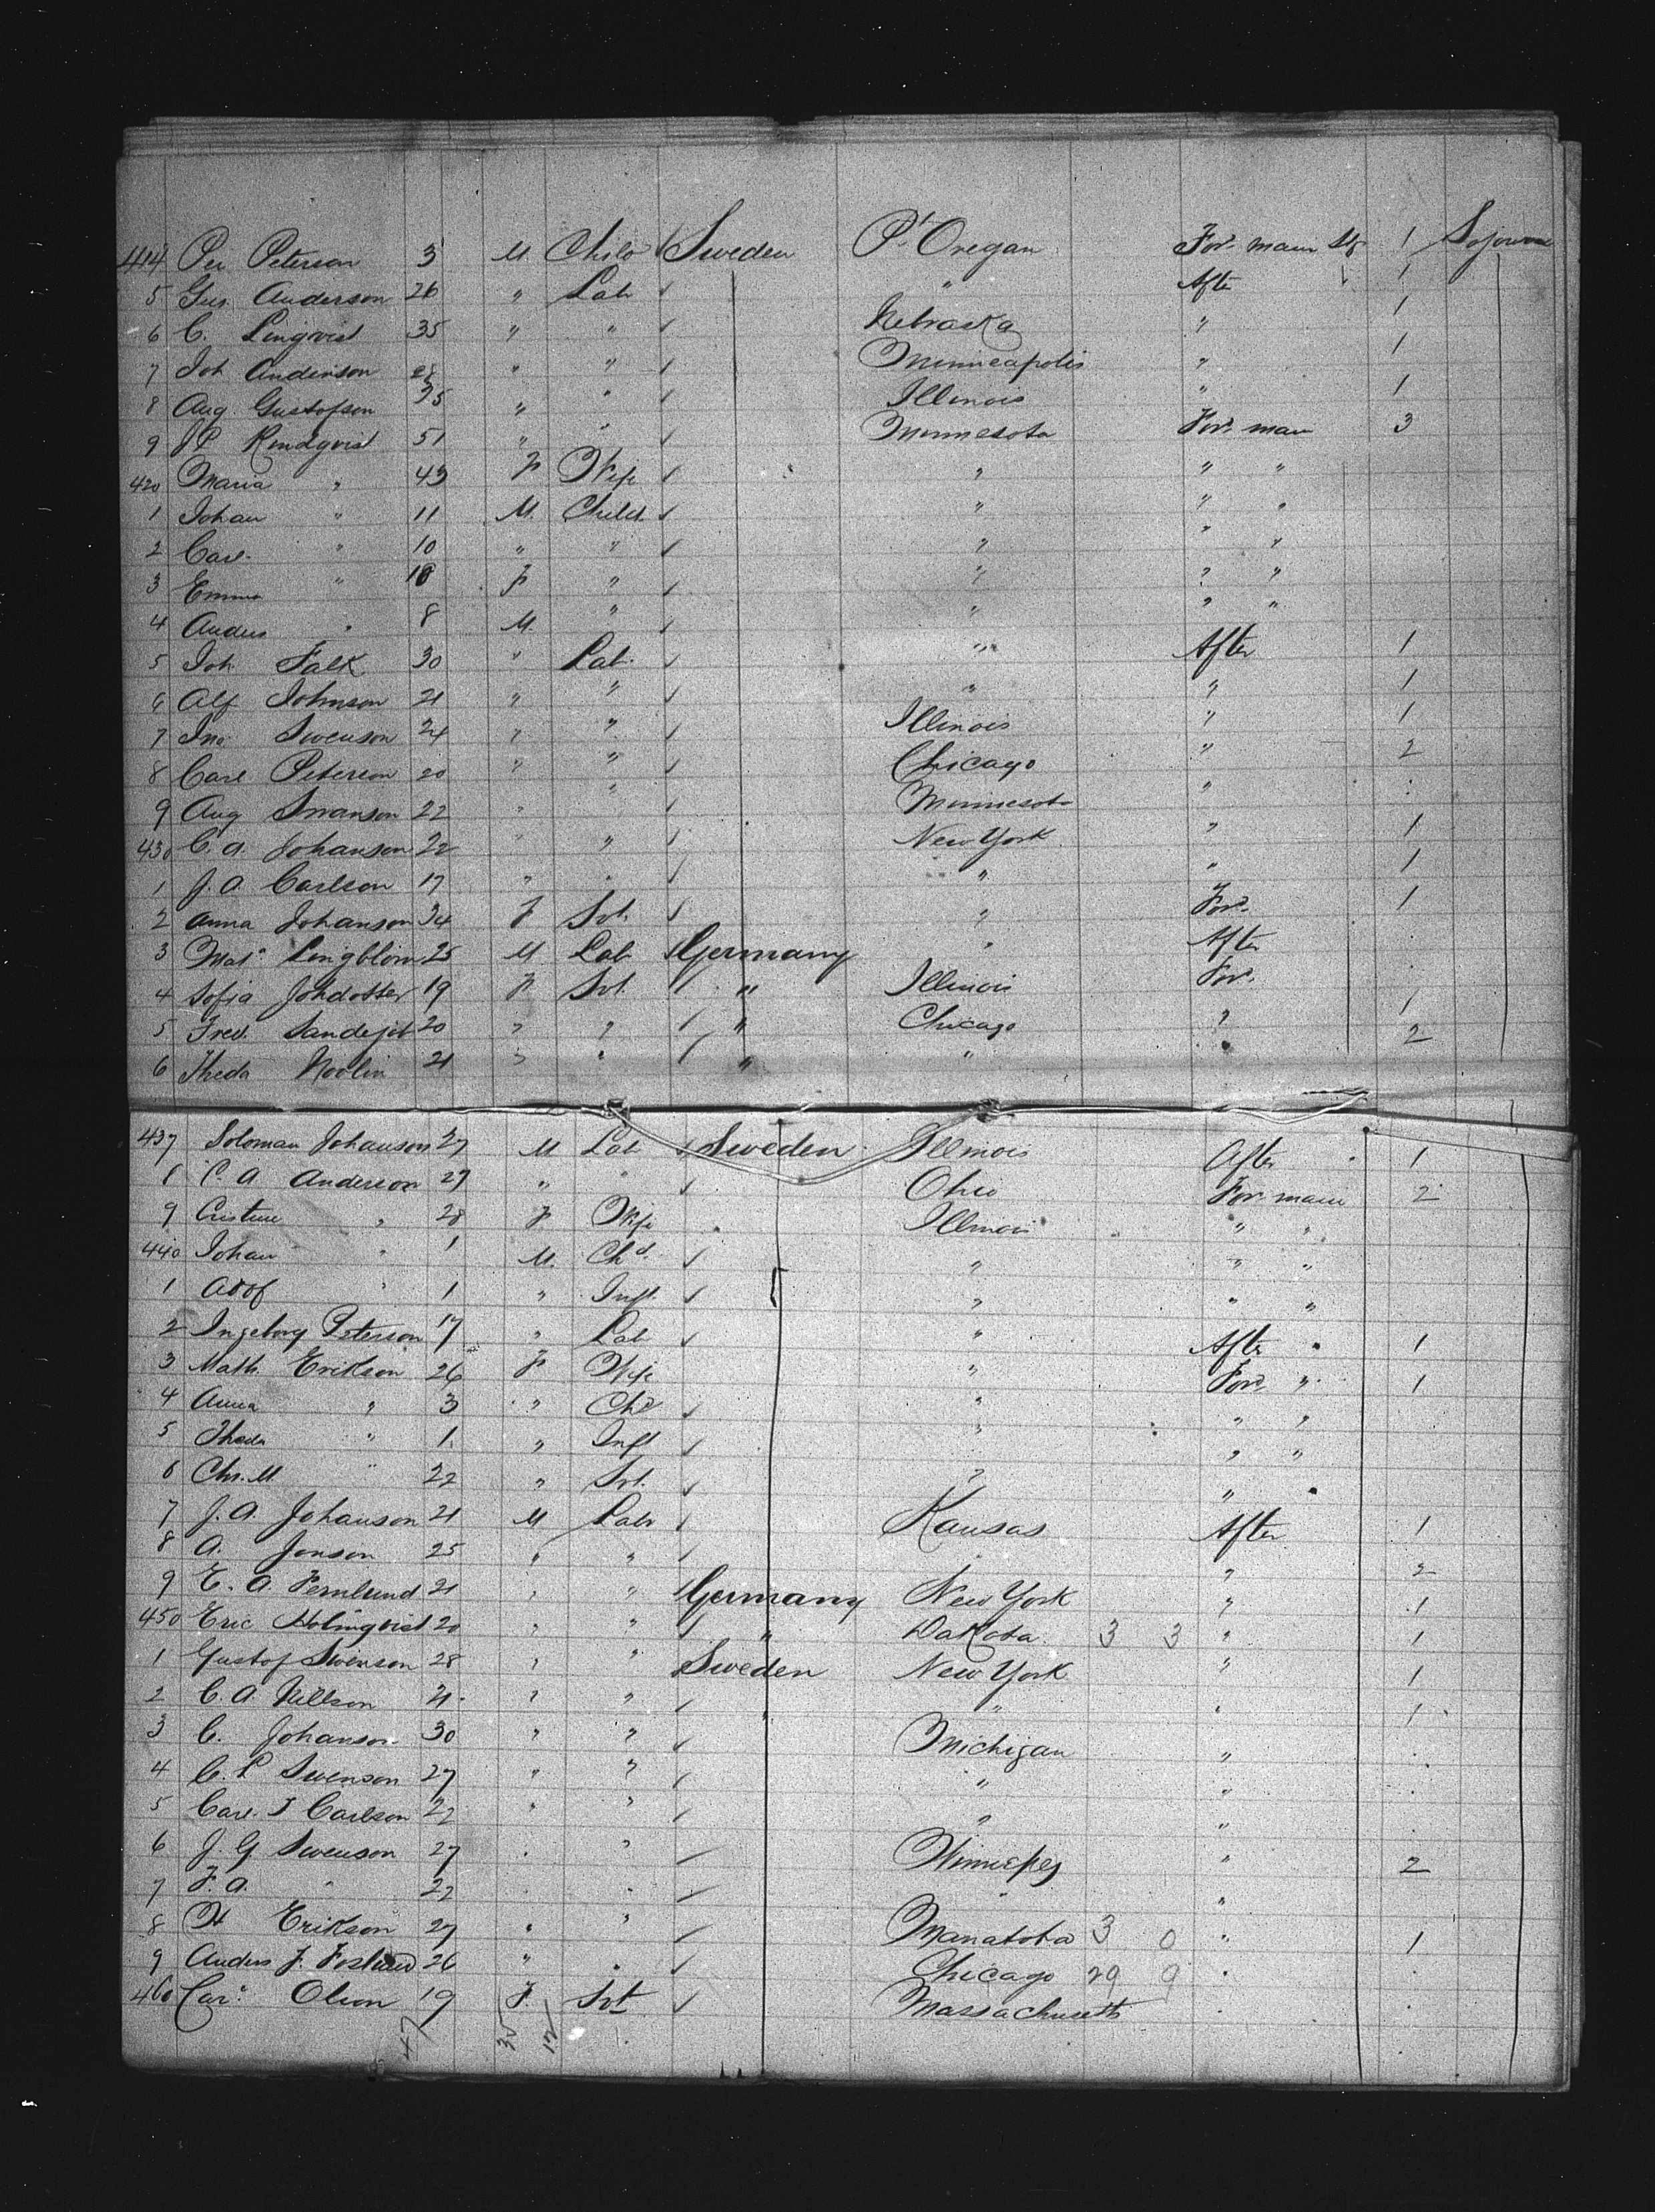 414 Per Peterson 3 M Child Sweden Pt Oregan For. main Stg 1 Sojourn
5 Gus. Anderson 26 " Lab " After 1
6 C. Linqvist 35 " " Nebraska " 1
7 Joh Anderson " " Minneapolis " 1
8 Aug Gustofson 35 " " Illinois " 1
9 J P Rundqvist 51 " " Minnesota For. main 3
420 Maria " 43 F Wife " " "
1 Johan " 11 M. Child. " " "
2 Carl " 10 " " " " "
3 Emma " 10 F " " " "
4 Andus " 8 M. " " " "
5 Joh Falk 30 " Lab. " After 1
6 Alf Johnson 21 " " " " 1
7 Jno Swenson 24 " " Illinois " 1
8 Carl Peterson 20 " " Chicago " 2
9 Aug Swanson 22 " " Minnesota "
430 C. A. Johanson 22 " " New York " 1
1 J. A. Carlson 17 " " " " 1
2 Anna Johanson 34 F Svt. " For. 1
3 Mats Lingblom 25 M Lab Germany " After
4 Sofia Johdotter 19 F Svt. " Illinois For.
5 Fred. 20 " " " Chicago " 1
6 Theda Nodlin 21 " " " " " 2
437 Soloman Johanson 27 M Lab Sweden Illinois After 1
8 C. A Anderson 27 " " Ohio For main 2
9 Cristine " 28 F Wife Illinois " "
440 Johan " 1 M. Chd. " " "
1 Adof " 1 " Inft. " " "
2 Ingeborg Peterson 17 " Lab " After " 1
3 Math. Erikson 26 F Wife " For. " 1
4 Anna " 3 " Chd " " "
5 Theda " 1 " Inft " " "
6 Chr. M " 22 " Svt. " " "
7 J. A. Johanson 21 M Labr Kansas After 1
8 A. Jonson 25 " " " " 2
9 E. A. Fernlund 21 " " Germany New York " 1
450 Eric Holmqvist 20 " " " Dakota 3 3 " 1
1 Gustof Swenson 28 " " Sweden New York " 1
2 C. A. Nillson 21 " " " " 1
3 C. Johanson 30 " " Michigan "
4 C. P Swenson 27 " " " "
5 Carl. J Carlson 22 " " " "
6 J. G Swenson 27 " " Winnepeg " 2
7 F. A. " 22 " " "
8 H Erikson 27 " " Manatoba 3 0 " 1
9 Andus J. Foslund 26 " " Chicago 29 9 "
460 Car. Olson 19 F. Svt Massachusetts
47 35 12